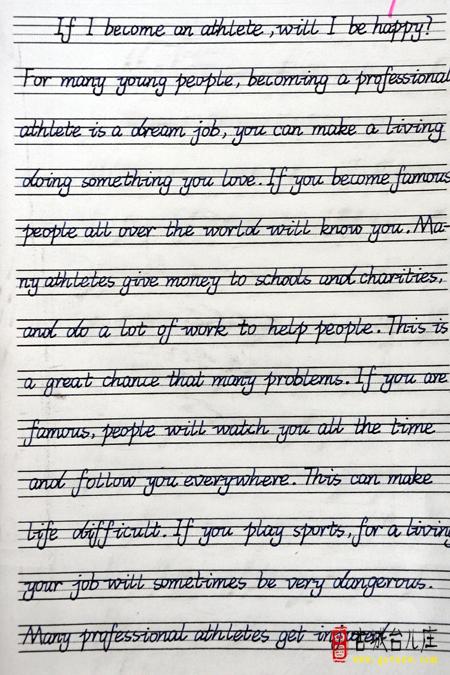 If I become an athlete, will I be happy?
For many young people, becoming a professional
athlete is a dream job, you can make a living
doing something you love. If you become famous
people all over the world will know you. Ma-
ny athletes give money to schools and charities,
and do a lot of work to help people. This is
a great chance that many problems. If you are
famous, people will watch you all the time
and follow you everywhere. This can make
life difficult. If you play sports, for a living
your job will sometimes be very dangerous.
Many professional athletes get injured
古城台儿庄